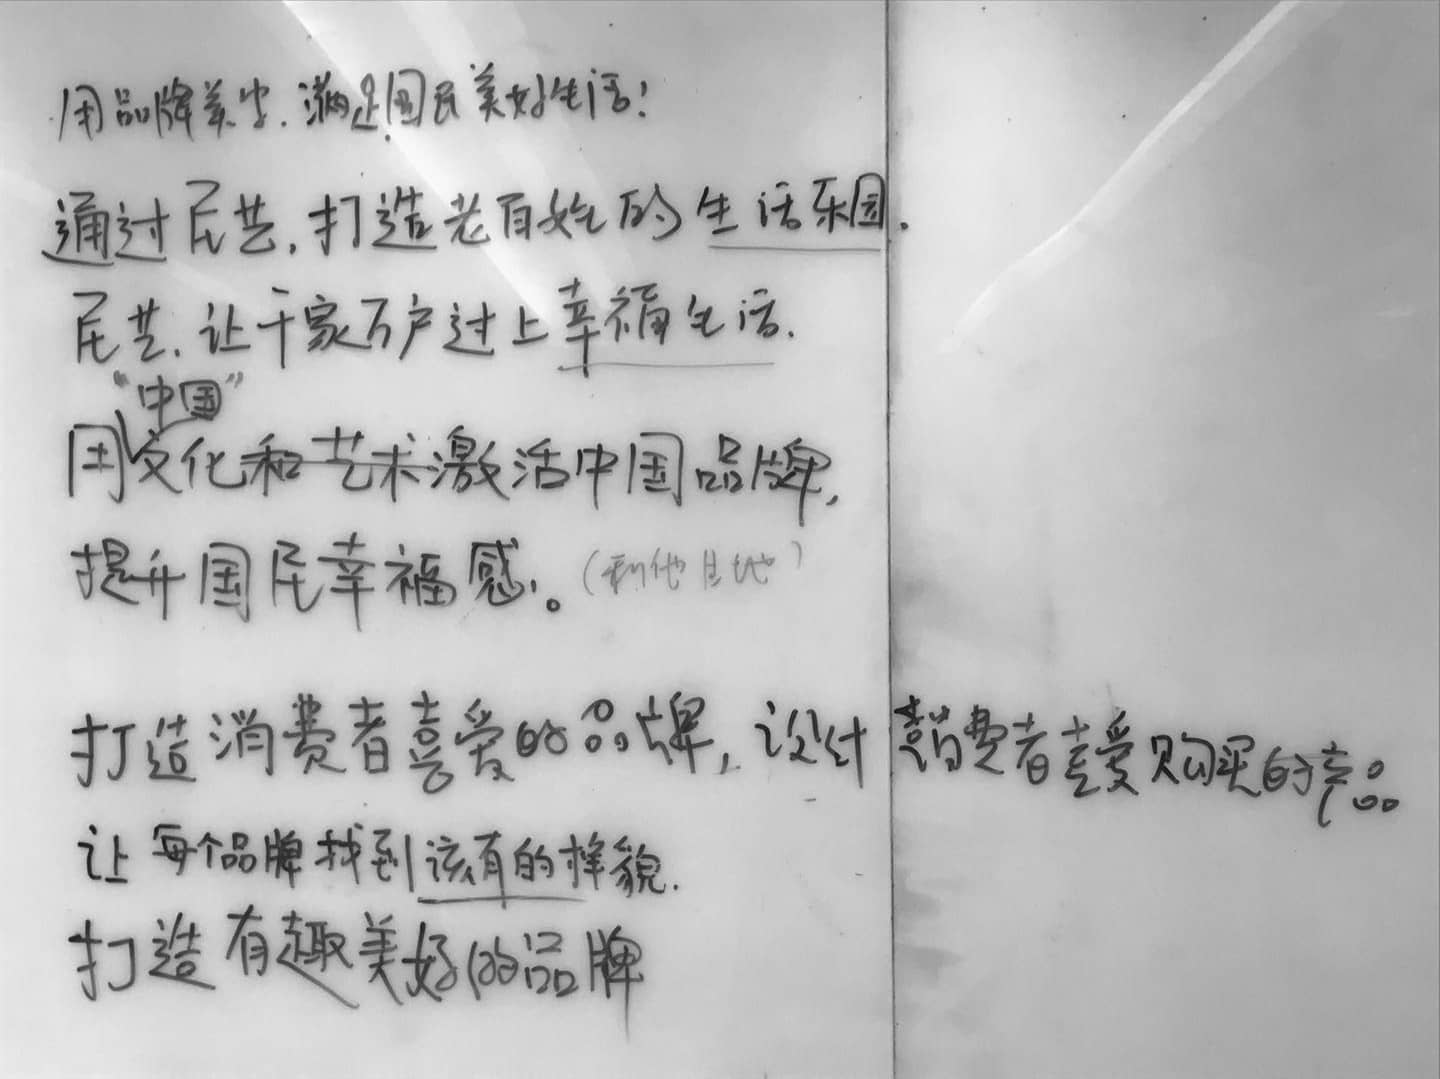 用品牌美学.满足国民美好生活!
通过民艺,打造老百姓的生活乐园.
民艺.让千家万户过上幸福生活.
“中国”
用文化和艺术激活中国品牌,
提升国民幸福感。(利他)
打造消费者喜爱的品牌,设计消费者喜爱购买的产品
让每个品牌找到该有的样貌.
打造有趣美好的品牌